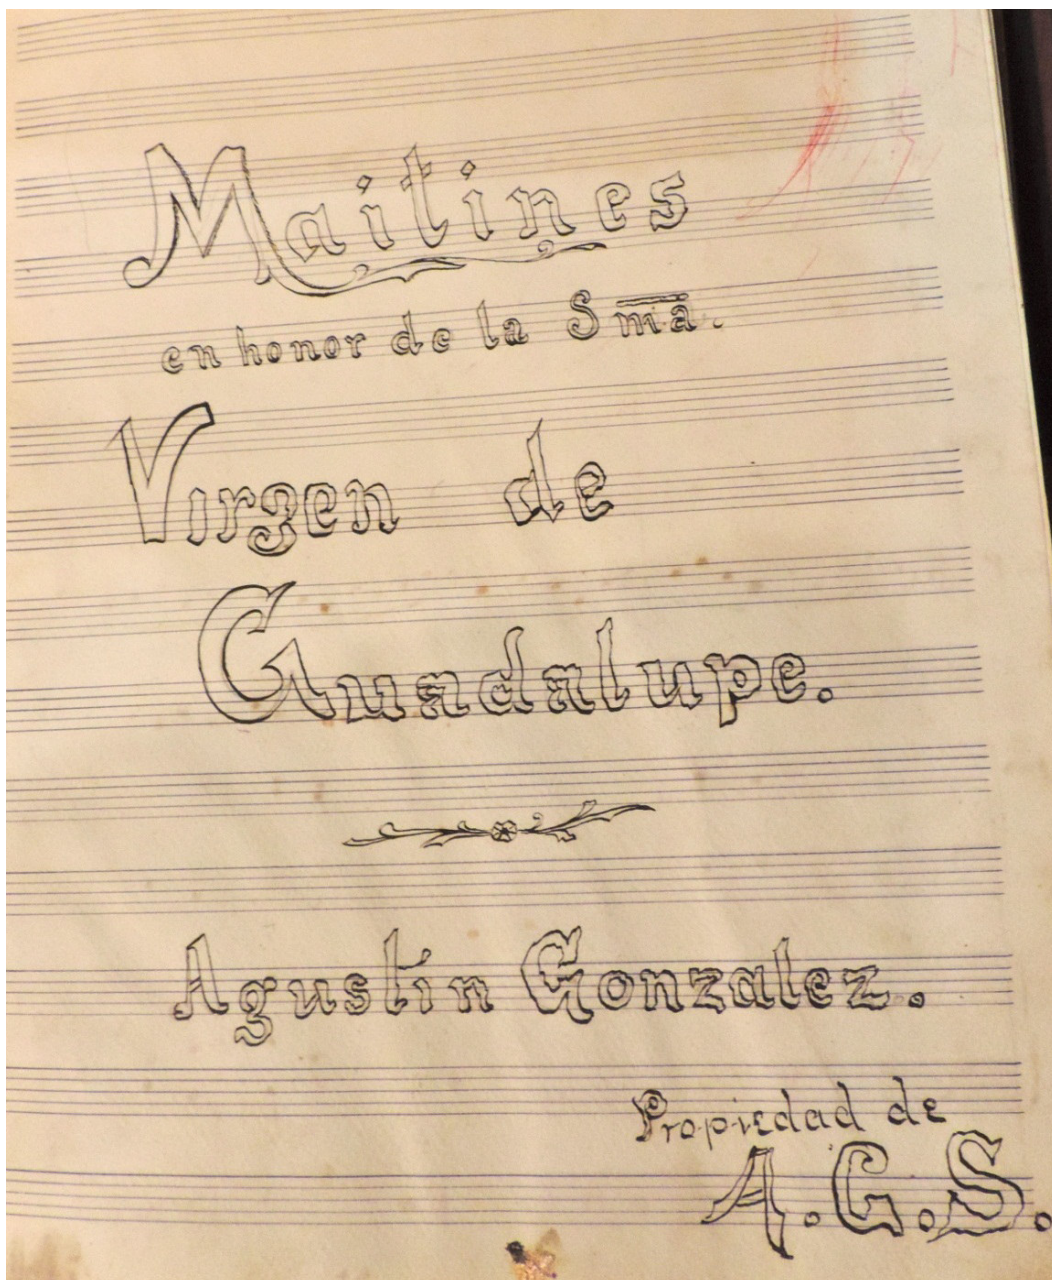 Maitines
en honor de la Sma.
Virgen de
Guadalupe.
Agustín Gonzalez.
Propiedad de
A.G.S.